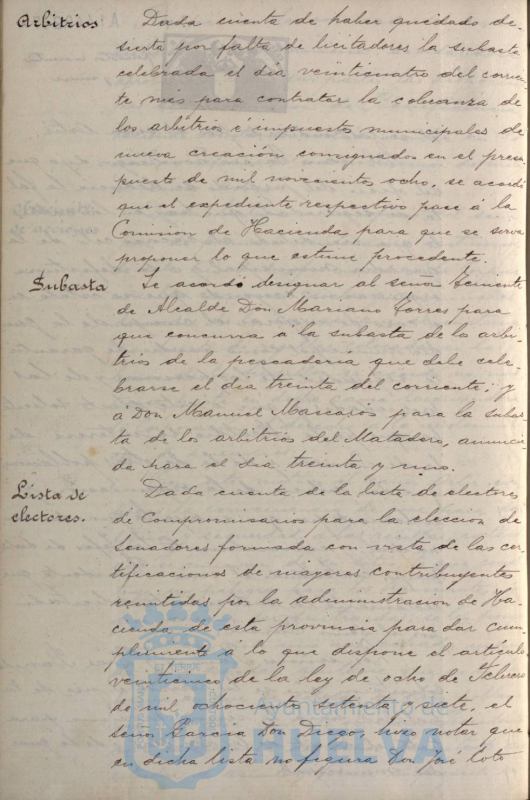 Arbitrios
Dada cuenta de haber quedado de-
sierta por falta de licitadores la subasta
celebrada el dia veinticuatro del corrien-
te mes para contratar la cobranza de
los arbitrios é impuestos municipales de
nueva creación consignados en el presu-
puesto de mil novecientos ocho, se acordó
que el expediente respectivo pase á la
Comision de Hacienda para que se sirva
proponer lo que estime procedente.
Subasta
Se acordó designar al señor Teniente
de Alcalde Don Mariano Torres para
que concurra á la subasta de los arbi-
trios de la pescadería que debe cele-
brarse el dia treinta del corriente; y
á Don Manuel Mascarós para la subas-
ta de los arbitrios del Matadero, anuncia-
da para el dia treinta y uno.
Lista de
electores.
Dada cuenta de la lista de electores
de Compromisarios para la eleccion de
Senadores formada con vista de las cer-
tificaciones de mayores contribuyentes
remitidas por la administracion de Ha-
cienda de esta provincia para dar cum-
plimiento á lo que dispone el artículo
veinticinco de la ley de ocho de Febrero
de mil ochocientos setenta y siete, el
Señor Garcia Don Diego, hizo notar que
en dicha lista no figura Don José Coto
Ayuntamiento de
HUELVA